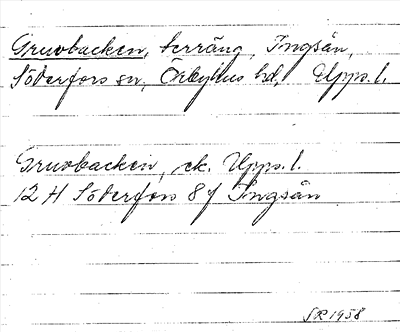 Gruvbacken, terräng, Tngsån,
Söderfors sn, Örbyhus hd, Upps. l.
Gruvbacken, ek. Upps. l.
12 H Söderfors 8 f Tngsån
SR 1958